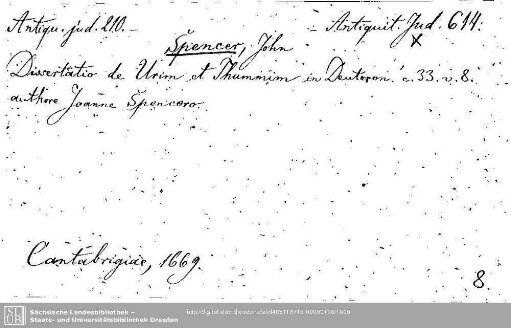 Antiqu. jud. 210. - Antiquit. Jud. 614.
x
Spencer, John
Dissertatio de Urim et Thummim in Deuteron. c. 33. v. 8.
authore Joanne Spencero.
Cantabrigiae, 1669.
8.
Sächsische Landesbibliothek –
Staats- und Universitätsbibliothek Dresden